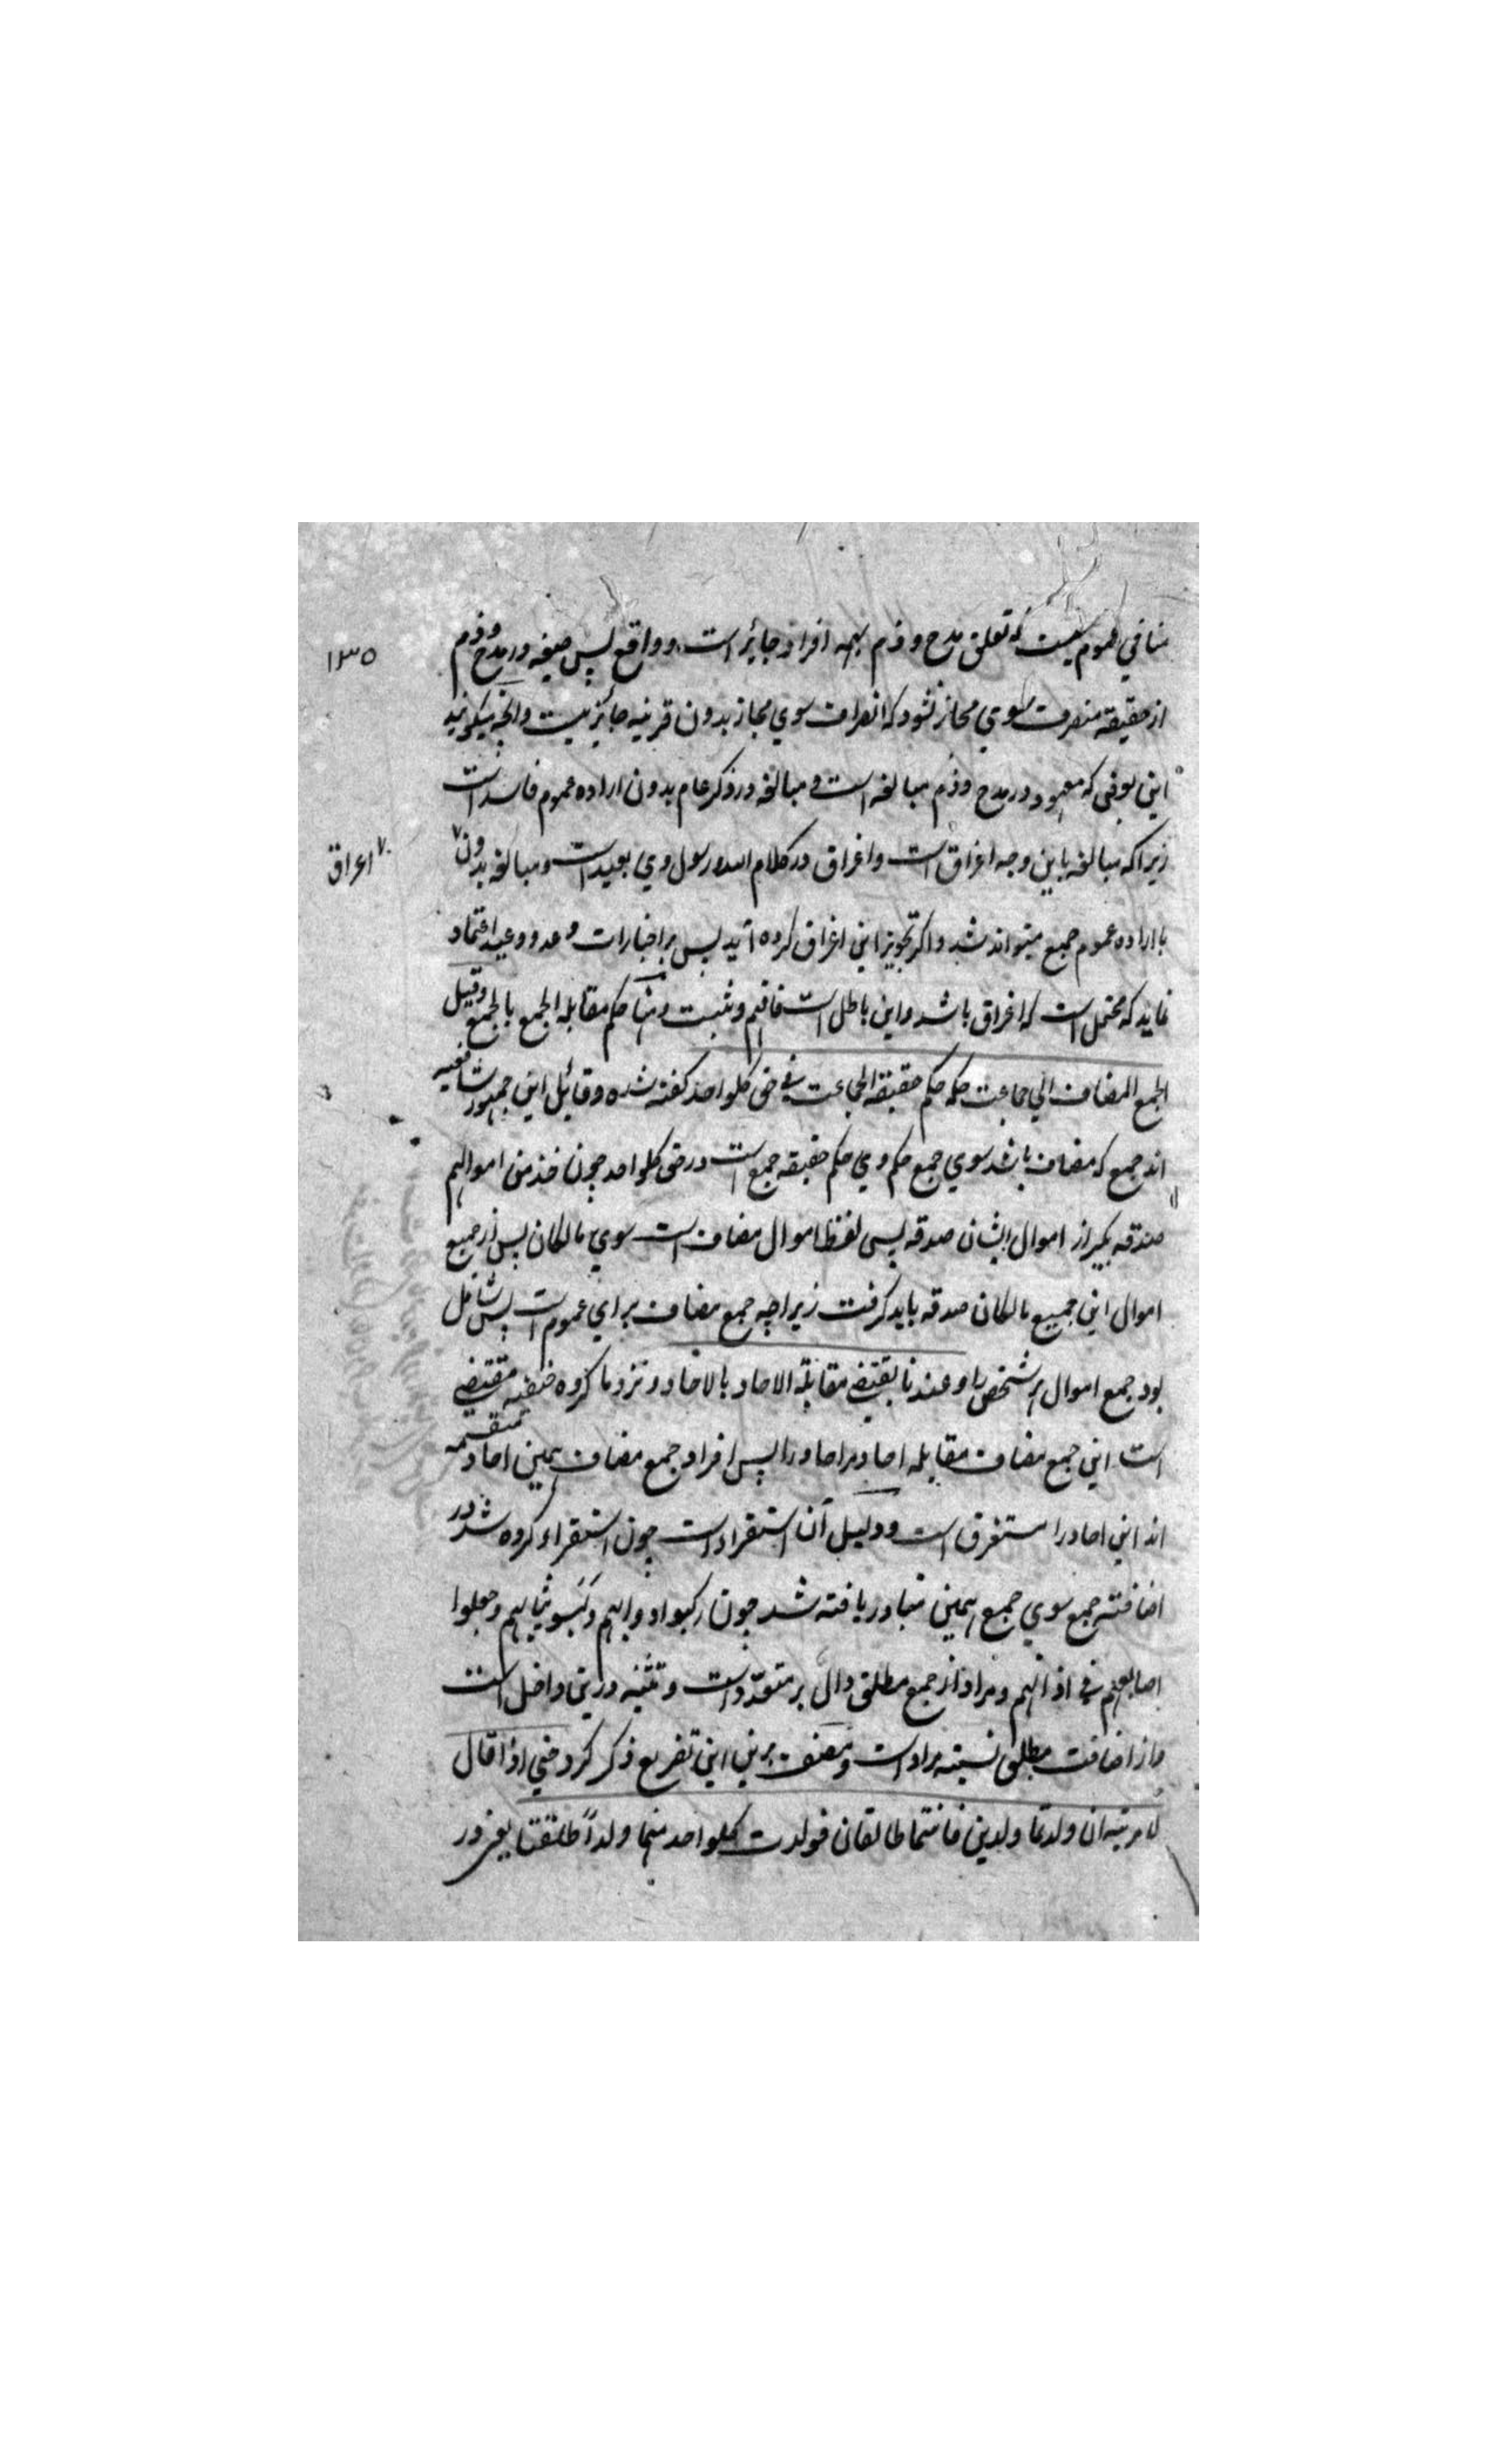 ۱۳۵
منافي عموم نیست که تعلق مدح و ذم بهمه افراد جائز است و واقع پس صیغه در مدح و ذم
از حقیقته منصرف سوي مجاز نشود که انصراف سوي مجاز بدون قرینه جائز نیست و آنچه میگویند
این بعضی که معهود در مدح و ذم مبالغه است و مبالغه در ذکر عام بدون اراده عموم فاسد است
زیرا که مبالغه باین وجه اغراق است و اغراق در کلام الله و رسول وي بعید است و مبالغه بدون
اغراق
با اراده عموم جمع میتواند شد و اکر تجویز این اغراق کرده آید پس بر اخبارات وعد و وعید اعتماد
نماید که محتمل است که اغراق باشد و این باطل است فافهم و ثبت و منها حکم مقابله الجمع بالجمع وقیل
الجمع المضاف الي جماعت حکمه حکم حقیقة الجماعت في حق کلواحد کفته شده و قائل این جمهور شافعیه
اند جمع که مضاف باشد سوي جمع حکم وي حکم حقیقه جمع است در حق کلواحد چون خذ من اموالهم
صدقه بکیر از اموال ایشان صدقه پس لفظ اموال مضاف است سوي مالکان پس از جمیع
اموال این جمیع مالکان صدقه باید کرفت زیراچه جمع مضاف براي عموم است پس شامل
بود جمع اموال هر شخص را و عندنا یقتضي مقابلة الاحاد بالاحاد و نزد ما کروه حنفیه مقتضي
است این جمع مضاف مقابله احاد مر احاد را پس افراد جمع مضاف بهمین احاد منقسمه
اند این احاد را مستغرق است و دلیل آن استقراء است چون استقراء کرده شد در
اضافته جمع سوي جمع همین متبادر یافته شد چون رکبوا دوابهم و لبسو ثیابهم و جعلوا
اصابعهم في اذانهم و مراد از جمع مطلق دال بر متعدد است و تثنیه درین داخل است
و از اضافت مطلق نسبته مراد است و مصنف برین این تفریع ذکر کرد حتي اذا قال
لامرتیه ان ولدتما ولدین فانتما طالقان فولدت کلواحد منهما ولداً طلقتا یعني در